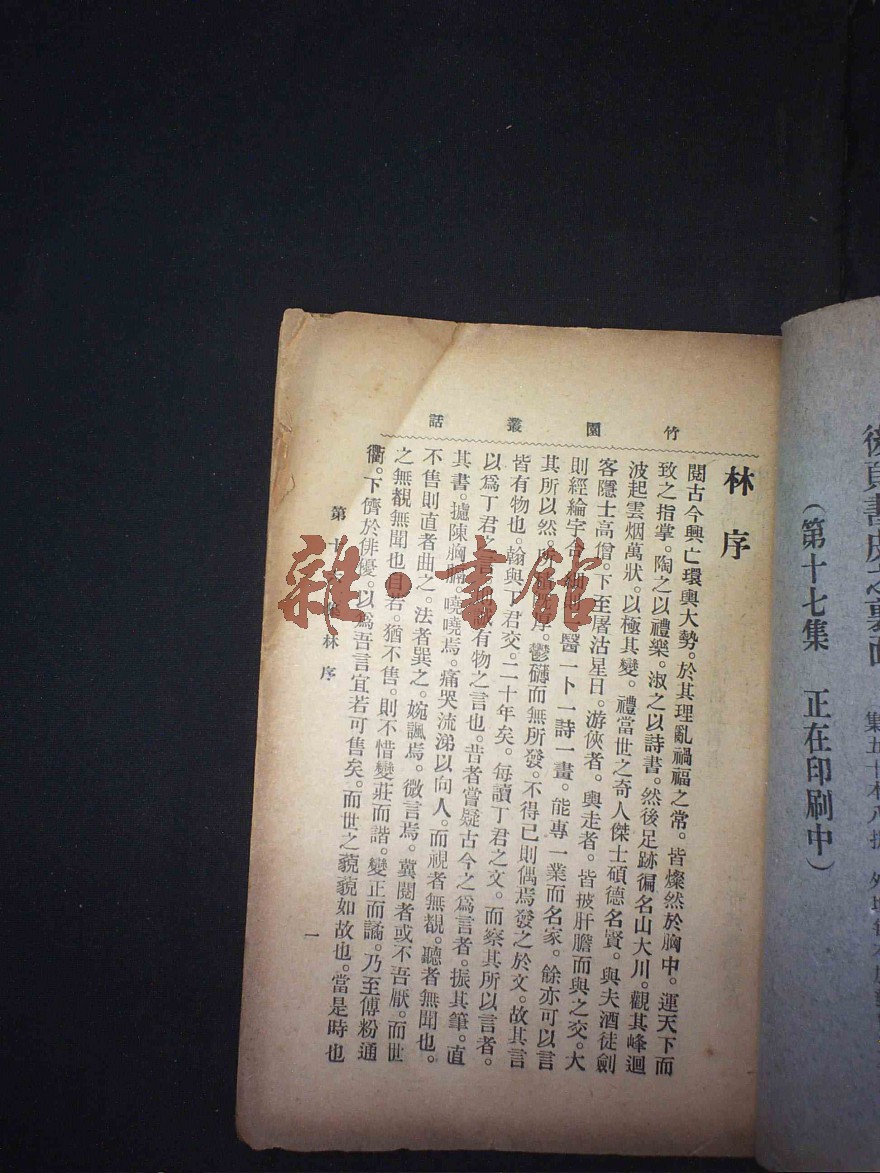 竹園叢話
林序
閱古今興亡環輿大勢。於其理亂禍福之常。皆燦然於胸中。運天下而
致之指掌。陶之以禮樂。淑之以詩書。然後足跡徧名山大川。觀其峰迴
波起雲烟萬狀。以極其變。禮當世之奇人傑士碩德名賢。與夫酒徒劍
客隱士高僧。下至屠沽星日。游俠者。輿走者。皆披肝膽而與之交。大
則經綸宇合。細則一醫一卜一詩一畫。能專一業而名家。餘亦可以言
其所以然。所 鬱礴而無所發。不得已則偶焉發之於文。故其言
皆有物也。翰與丁君交。二十年矣。每讀丁君之文。而察其所以言者。
以爲丁君之言 有物之言也。昔者嘗疑古今之爲言者。振其筆。直
其書。攄陳胸膈。嘵嘵焉。痛哭流涕以向人。而視者無覩。聽者無聞也。
不售則直者曲之。法者巽之。婉諷焉。微言焉。冀閱者或不吾厭。而世
之無覩無聞也自若。猶不售。則不惜變莊而諧。變正而譎。乃至傅粉通
衢。下儕於俳優。以爲吾言宜若可售矣。而世之藐藐如故也。當是時也
第十 林序
一
雜·書館
後頁書皮之裏面
(第十七集 正在印刷中)